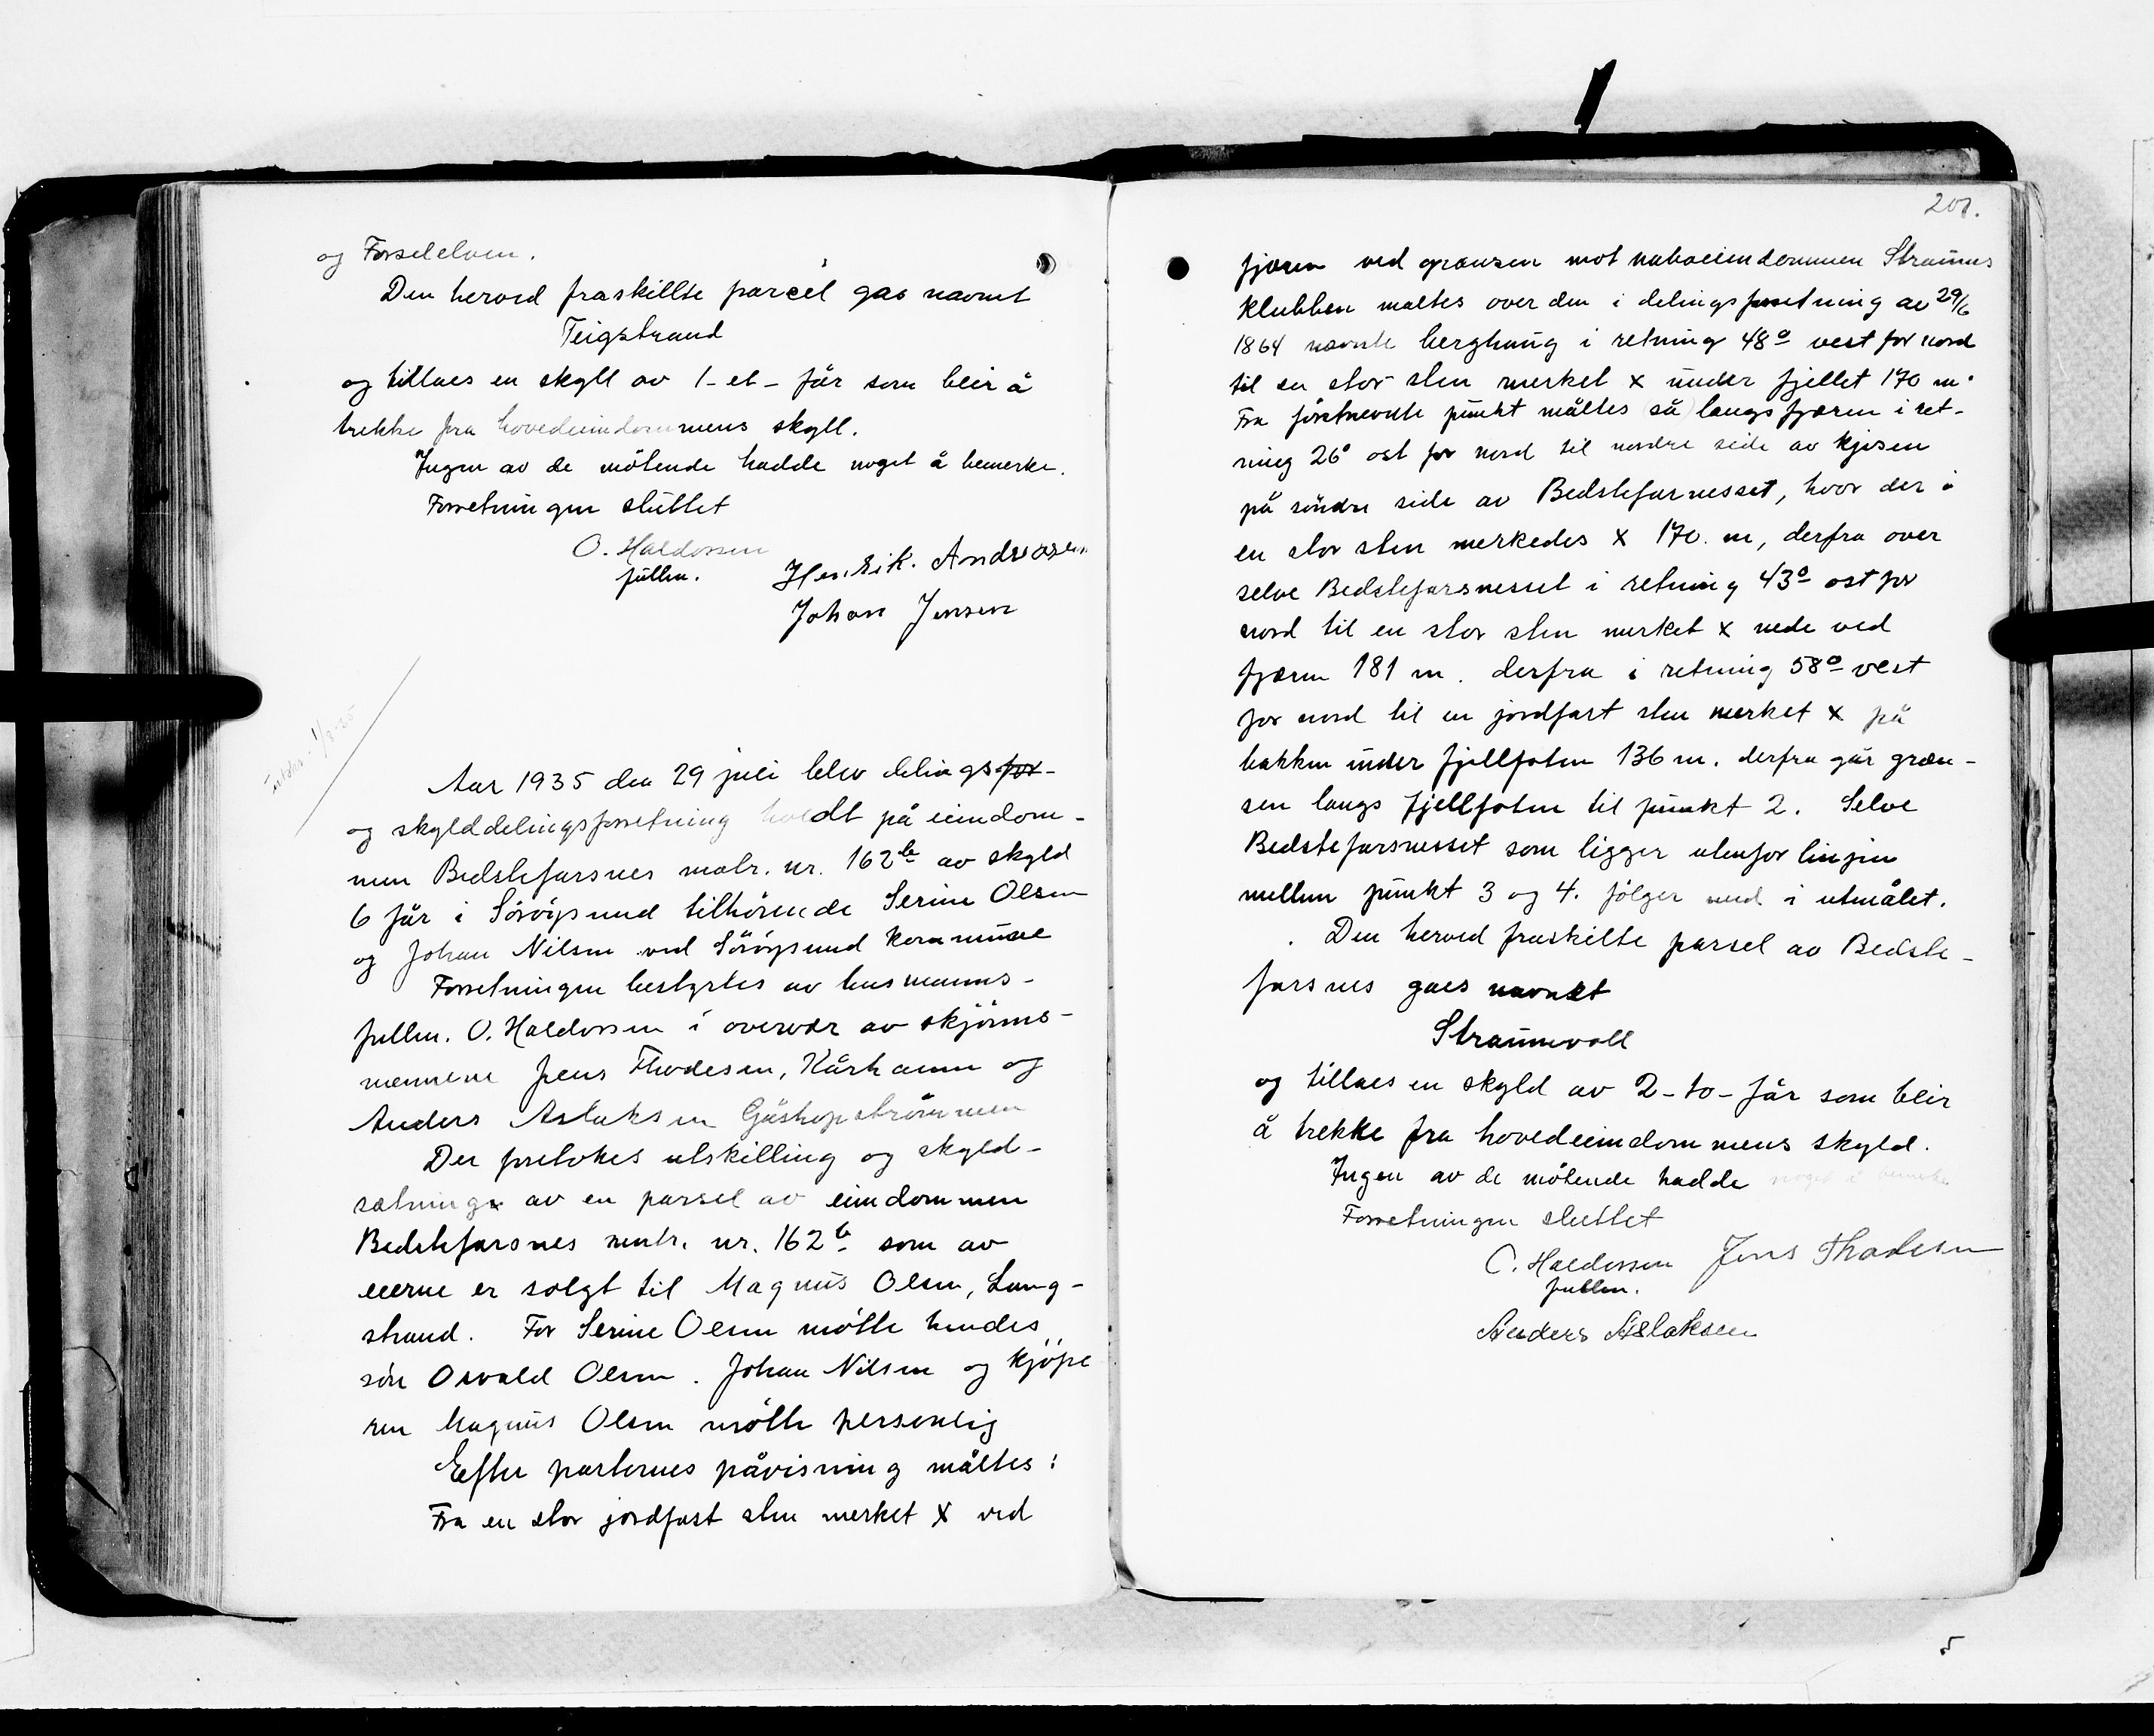 og Forselelven.
Den herved fraskillte parcel gas navnet
Teigstrand
og tillaes en skyll av 1 - et - før som blir å
trekke fra hovedeiendommens skyll.
Ingen av de møtende hadde noget å bemerke.
Forretningen sluttet
O. Haldorsen
fullm.
Henrik. Andreasen
Johan Jensen
1/8-35
Aar 1935 den 29 juli blev delings for-
og skylddelingsforretning holdt på eiendom-
men Bedstefarsnes matr. nr. 162b av skyld
6 før i Sørøysund tilhørende Serine Olsen
og Johan Nilsen ved Sørøysund kommune
Forretningen bestyrtes av lensmanns-
fullm. O. Haldorsen i overvær av skjønns-
mennene Jens Thodesen, Kårhamn og
Anders Aslaksen Gåshopstrømmen
Der foretokes utskilling og skyld-
setning av en parsel av eiendommen
Bedstefarsnes matr. nr. 162b som av
eierne er solgt til Magnus Olsen, Lang-
strand. For Serine Olsen møtte hendes
søn Osvald Olsen. Johan Nilsen og kjøpe
ren Magnus Olsen møtte personlig
Efter partenes påvisning måltes:
Fra en stor jordfast sten merket X ved
201.
fjæren ved grænsen mot naboeiendommen Straums
klubben måltes over den i delingsforretning av 29/6
1864 nævnte berghaug i retning 48° vest for nord
til en stor sten merket x under fjellet 170 m.
Fra førstnevnte punkt måltes så langs fjæren i ret-
ning 26° ost for nord til nordre side av kjosen
på søndre side av Bedstefarnesset, hvor der i
en stor sten merkedes X 170. m, derfra over
selve Bedstefarsnesset i retning 43° ost for
nord til en stor sten merket x nede ved
fjæren 181 m. derfra i retning 58° vest
for nord til en jordfast sten merket x på
bakken under fjellfoten 136 m. derfra går græn-
sen langs fjellfoten til punkt 2. Selve
Bedstefarsnesset som ligger utenfor linjen
mellem punkt 3 og 4. følger med i utmålet.
Den herved fraskilte parsel av Bedste-
farsnes gaes navnet
Straumvoll
og tillaes en skyld av 2 - to - før som blir
å trekke fra hovedeiendommens skyld.
Ingen av de møtende hadde noget å bemerke
Forretningen sluttet
O. Haldorsen Jens Thodesen
fullm.
Anders Aslaksen
5